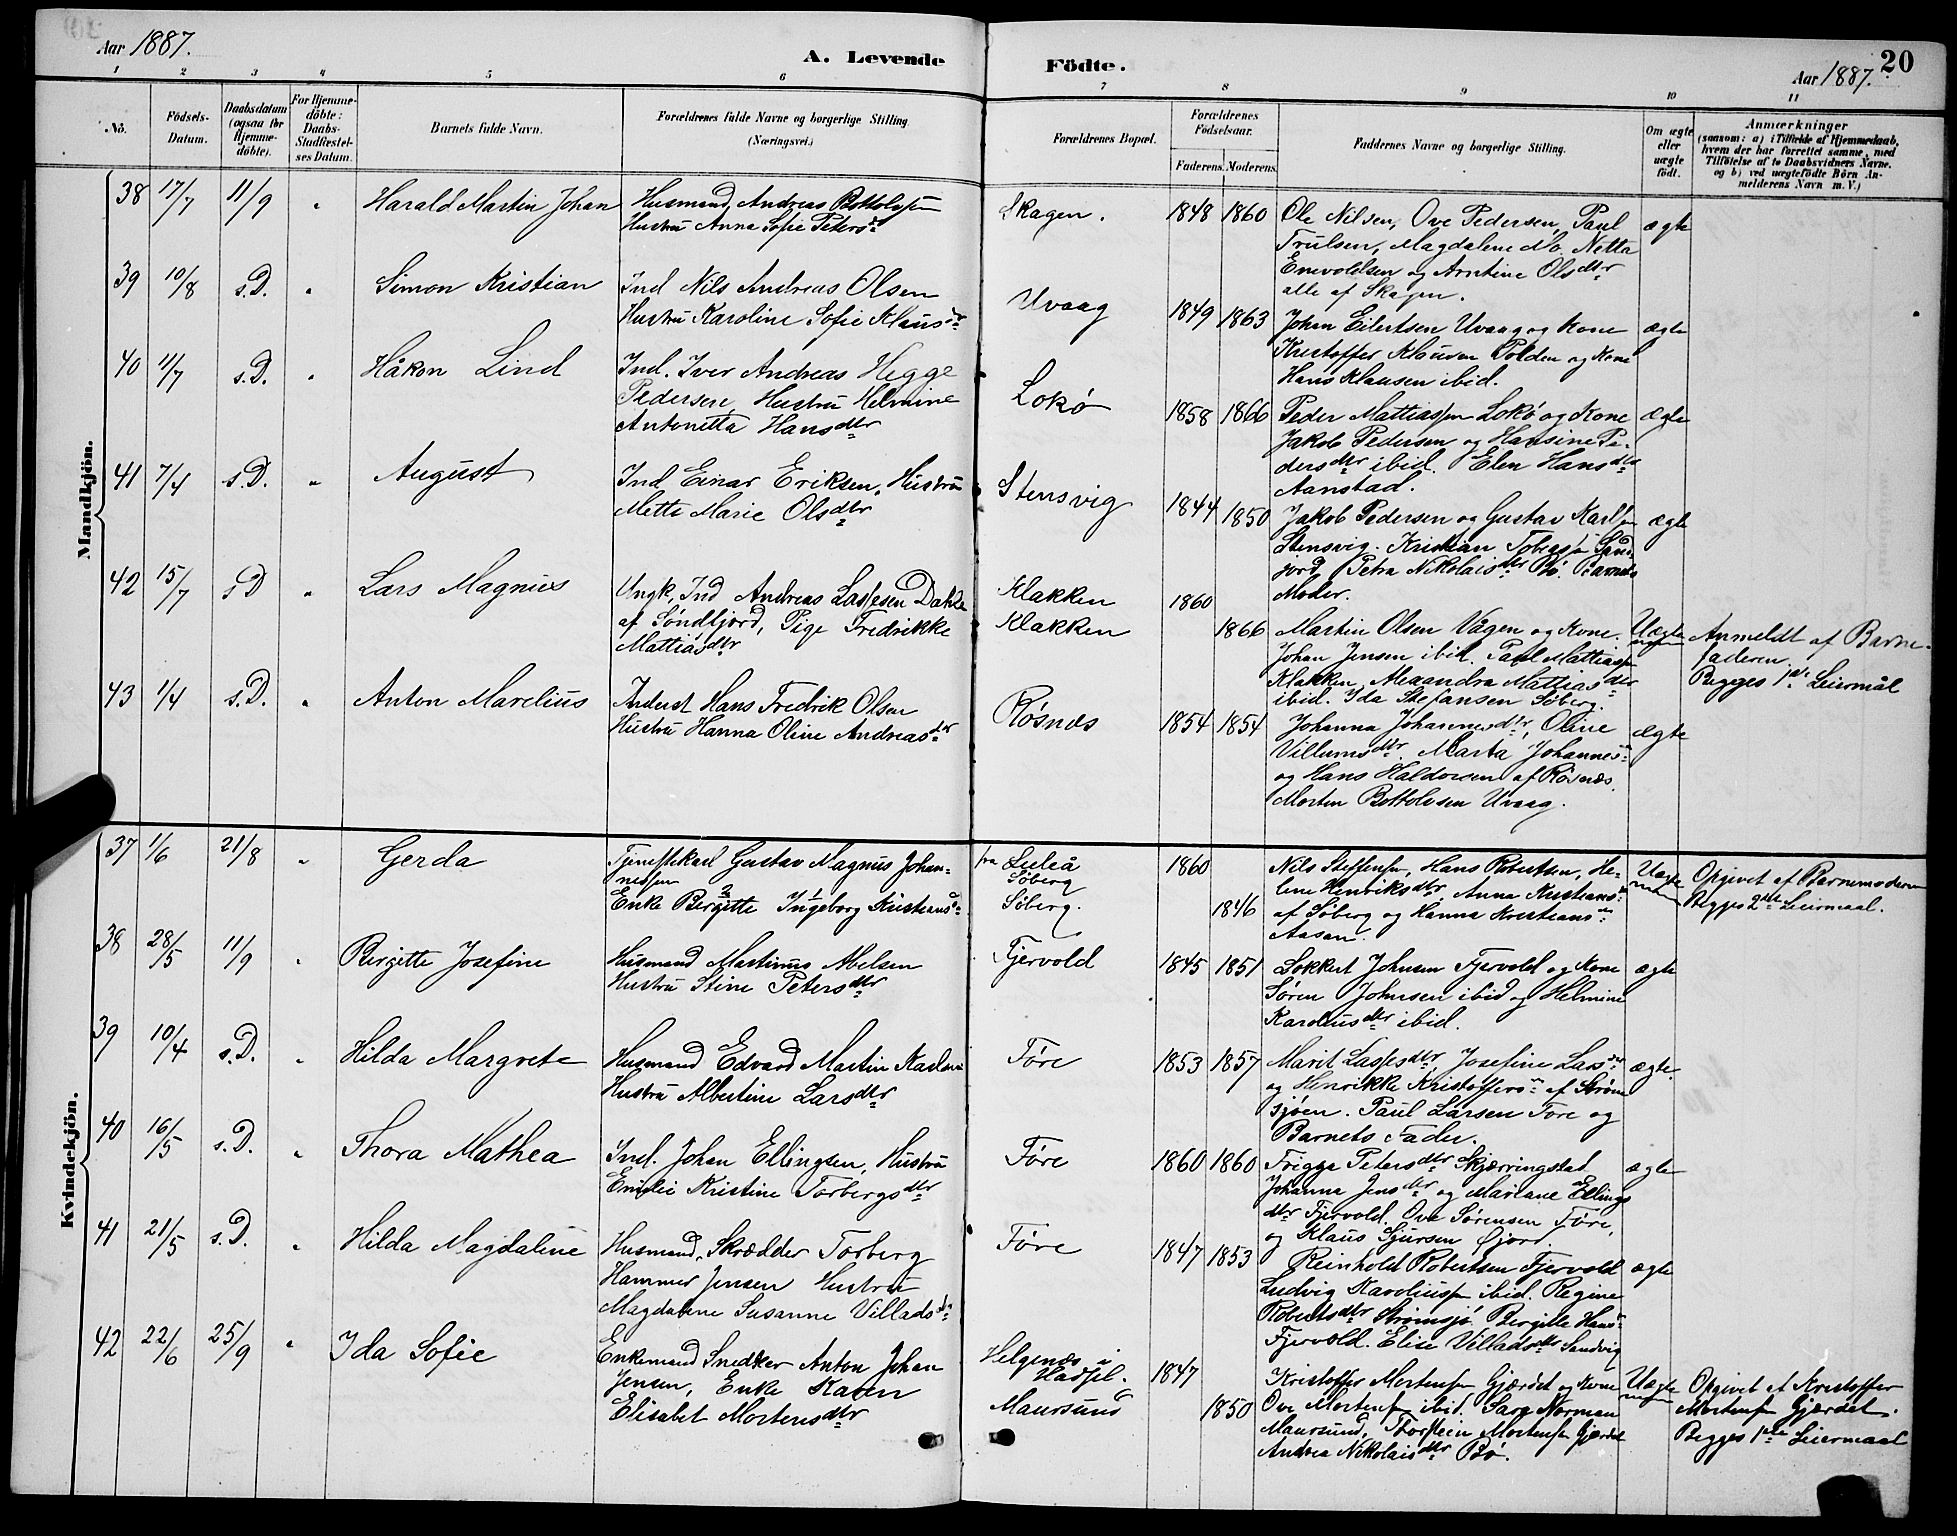 Aar 1887.
A. Levende
Födte.
Aar 1887.
20
1 2 3 4 5 6 7 8 9 10 11
No.
Födsels-
Datum.
Daabsdatum
(ogsaa for
Hjemme-
döbte).
For Hjemme-
döbte:
Daabs-
Stadfæstel-
ses Datum.
Barnets fulde Navn.
Forældrenes fulde Navne og borgerlige Stilling
(Næringsvei.)
Forældrenes Bopæl.
Forældrenes
Födselsaar.
Faderens. Moderens.
Faddernes Navne og borgerlige Stilling.
Om ægte
eller
uægte
født.
Anmærkninger
(saasom: a) i Tilfælde af Hjemmedaab,
hvem der har forrettet samme, med
Tilføielse af to Daabsvidners Navne.
og b) ved uægtefødte Börn An-
melderens Navn m. V.)
Mandkjön.
38 17/7 11/9 " Harald Martin Johan
Husmand, Andreas Bottolfsen
Hustru Anna Sofie Petersdr
Skagen. 1848 1860
Ole Nilsen, Ove Pedersen, Paul
Trulsen, Magdalene Mo, Netta
Enevoldsen og Arntine Olsdtr
alle af Skagen.
ægte
39 10/8 s.D. " Simon Kristian
Ind Nils Andreas Olsen
Hustru Karoline Sofie Klausdr
Uvaag 1849 1863
Johan Eilertsen Uvaag og Kone
Kristoffer Klausen Polden og Kone
Hans Klausen ibid.
ægte
40 11/7 s.D. " Håkon Lind
Ind. Iver Andreas Hegge
Pedersen, Hustru Helmine
Antonetta Hansdtr
Lokø 1858 1866
Peder Mattiassen Lokø og Kone
Jakob Pedersen og Hansine Pe-
dersdtr ibid. Elen Hansdtr
Aanstad.
ægte
41 7/4 s.D. " August
Ind Einar Eriksen, Hustru
Mette Marie Olsdtr
Stensvig 1844 1850
Jakob Pedersen og Gustav Karlsen
Stensvig. Kristian
Petra Nikolaisdtr Bø. Barnets
Moder.
ægte
42 15/7 s D " Lars Magnus
Ungk, Ind Andreas Lassesen Dahle
af Søndfjord, Pige Fredrikke
Mattiasdtr
Klakken
Klakken
1860
1866
Martin Olsen Vågen og Kone.
Johan Jensen ibid. Paul Mattiassen
Klakken, Alexandra Mattiasdtr
ibid. Ida Stefansen Søberg.
Uægte
Anmeldt af Barne-
faderen.
Begges 1ste Leiermål
43 1/4 s.D. " Anton Marelius
Inderst Hans Fredrik Olsen
Hustru Hanna Oline Andreasdtr
Røsnæs 1854 1854
Johanna Johannesdtr, Oline
Villumsdtr, Marta Johannes"
og Hans Haldorsen af Røsnæs.
Morten Bottolvsen Uvaag.
ægte
Kvindekjön.
37 1/6 21/8 " Gerda
Tjenestekarl Gustav Magnus Johan-
nessen
Enke Birgitte Ingeborg Kristiansd
fra Luleå
Søberg
Søberg.
1860
1846
Nils Steffensen, Hans Robertsen, He-
lene Henriksdtr, Anna Kristians"
af Søberg og Hanna Kristiansdtr
Aasan.
Uægte
Opgivet af Barnemoderen
Begges 2det Leiermaal.
38 28/5 11/9 " Birgitte Josefine
Husmand Martinus Abelsen
Hustru Stine Petersdtr
Fjervold 1845 1851
Lokkert Johnsen Fjervold og Kone
Søren Johnsen ibid og Helmine
Karoliusdtr ibid.
ægte
39 10/4 s.D. " Hilda Margrete
Husmand Edvard Martin Karlsen
Hustru Albertine Larsdtr
Føre 1853 1857
Marit Lassesdtr, Josefine Larsdtr
og Henrikke Kristoffers" af Strøm-
sjøen. Paul Larsen Føre og
Barnets Fader.
ægte.
40 16/5 s.D. " Thora Mathea
Ind. Johan Ellingsen, Hustru
Emilie Kristine Torbergsdtr
Føre 1860 1860
Frigga Petersdtr Skjærringstad
Johanna Jensdtr og Mariane Ellings
dtr Fjervold. Ove Sørensen Føre,
og Klaus Sjursen Gjord.
ægte
41 21/5 s.D. " Hilda Magdalene
Husmand, Skrædder Torberg
Hammer Jensen Hustru
Magdalene Susanne Villadsdr
Føre 1847 1853
Reinhold Robertsen Fjervold
Ludvig Karoliussen ibid. Regine
Robertsdtr Strømsjø. Birgitte Hans"
Fjervold. Elise Villadsdtr Sandvig
ægte
42 22/6 25/9 " Ida Sofie
Enkemand Snedker Anton Johan
Jensen, Enke Karen
Elisabet Mortensdtr
Helgenæs i
Hadsel.
Maursund
1847
1850
Kristoffer Mortensen Gjærdet og Kone
Ove Mortensen ibid. Sara Norman
Maursund, Thorstein Mortensen Gjærdet
Andrea Nikolaisdtr Bø.
Uægte
Opgivet af Kristoffer
Mortensen Gjærdet.
Begges 1ste Leiermaal